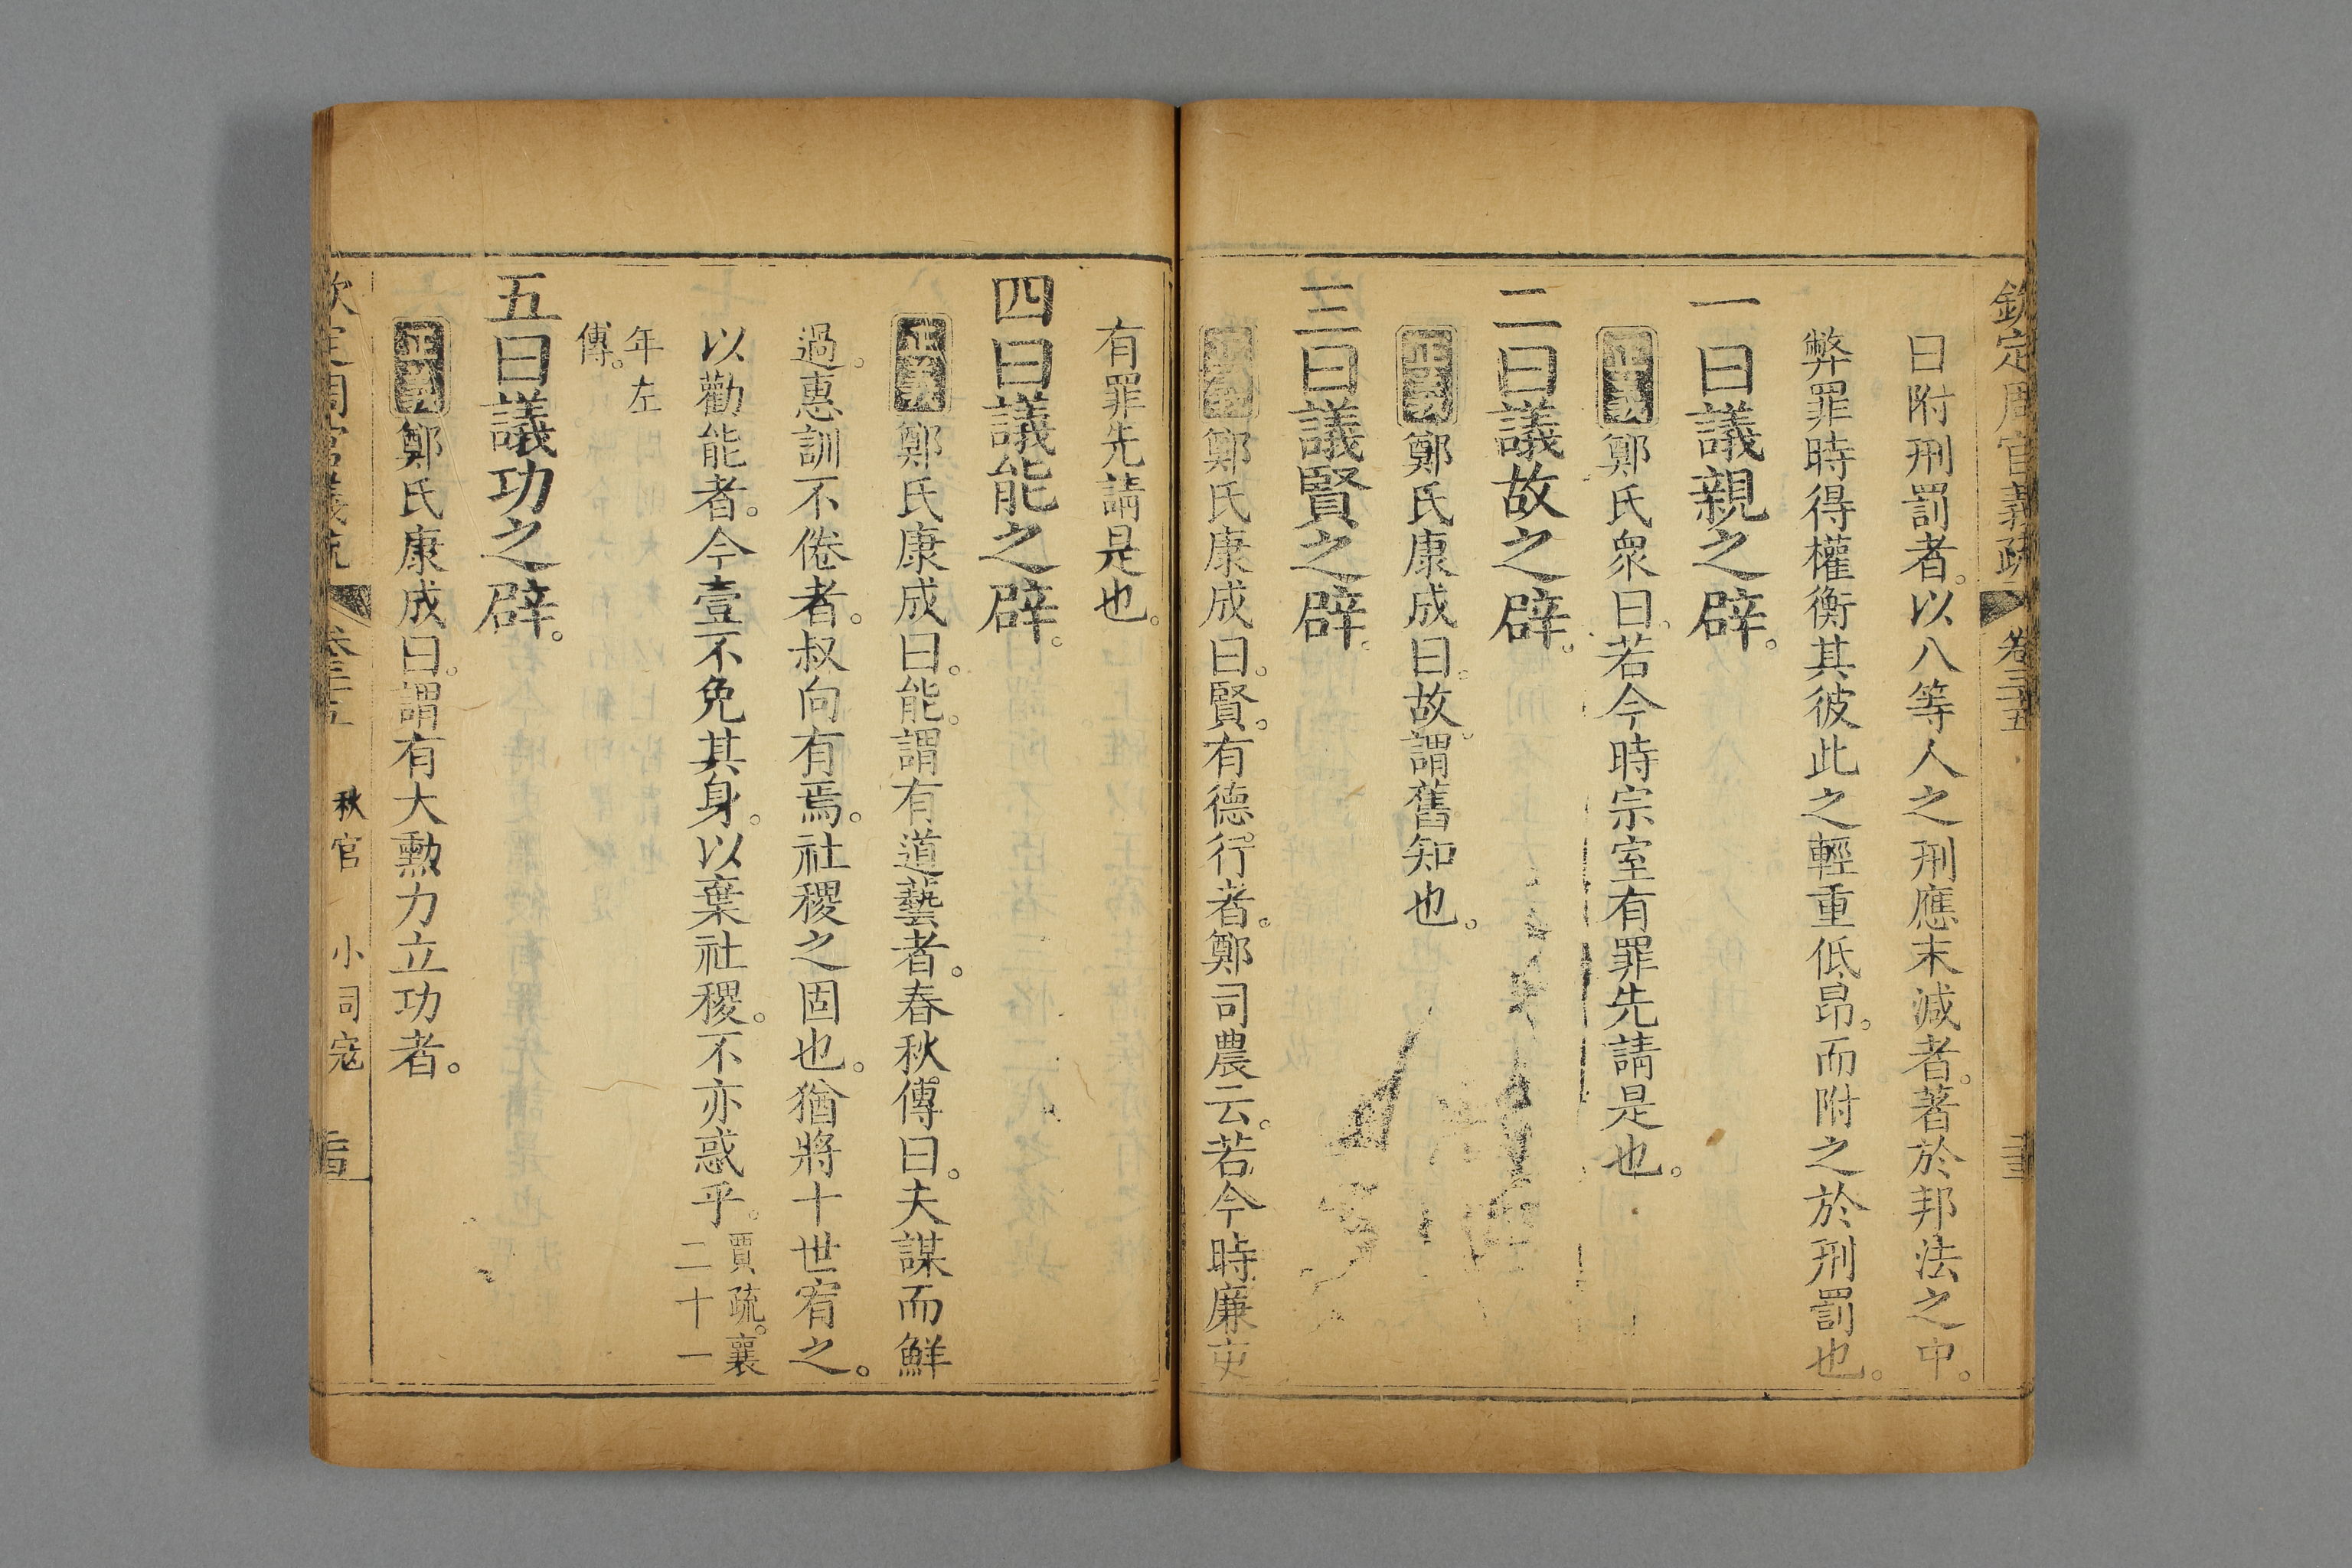 欽定周官義疏 卷三十五
曰附刑罰者。以八等人之刑應末減者。著於邦法之中。
弊罪時得權衡其彼此之輕重低昂。而附之於刑罰也。
一曰議親之辟。
正義鄭氏衆曰。若今時宗室有罪先請是也。
二曰議故之辟。
正義鄭氏康成曰。故。謂舊知也。
三曰議賢之辟。
正義鄭氏康成曰。賢。有德行者。鄭司農云。若今時廉吏
有罪先請是也。
四曰議能之辟。
正義鄭氏康成曰。能。謂有道藝者。春秋傳曰。夫謀而鮮
過。惠訓不倦者。叔向有焉。社稷之固也。猶將十世宥之。
以勸能者。今壹不免其身。以棄社稷。不亦惑乎。賈疏。襄二十一
年左傳。
五曰議功之辟。
正義鄭氏康成曰。謂有大勳力立功者。
欽定周官義疏 卷三十五 秋官 小司寇